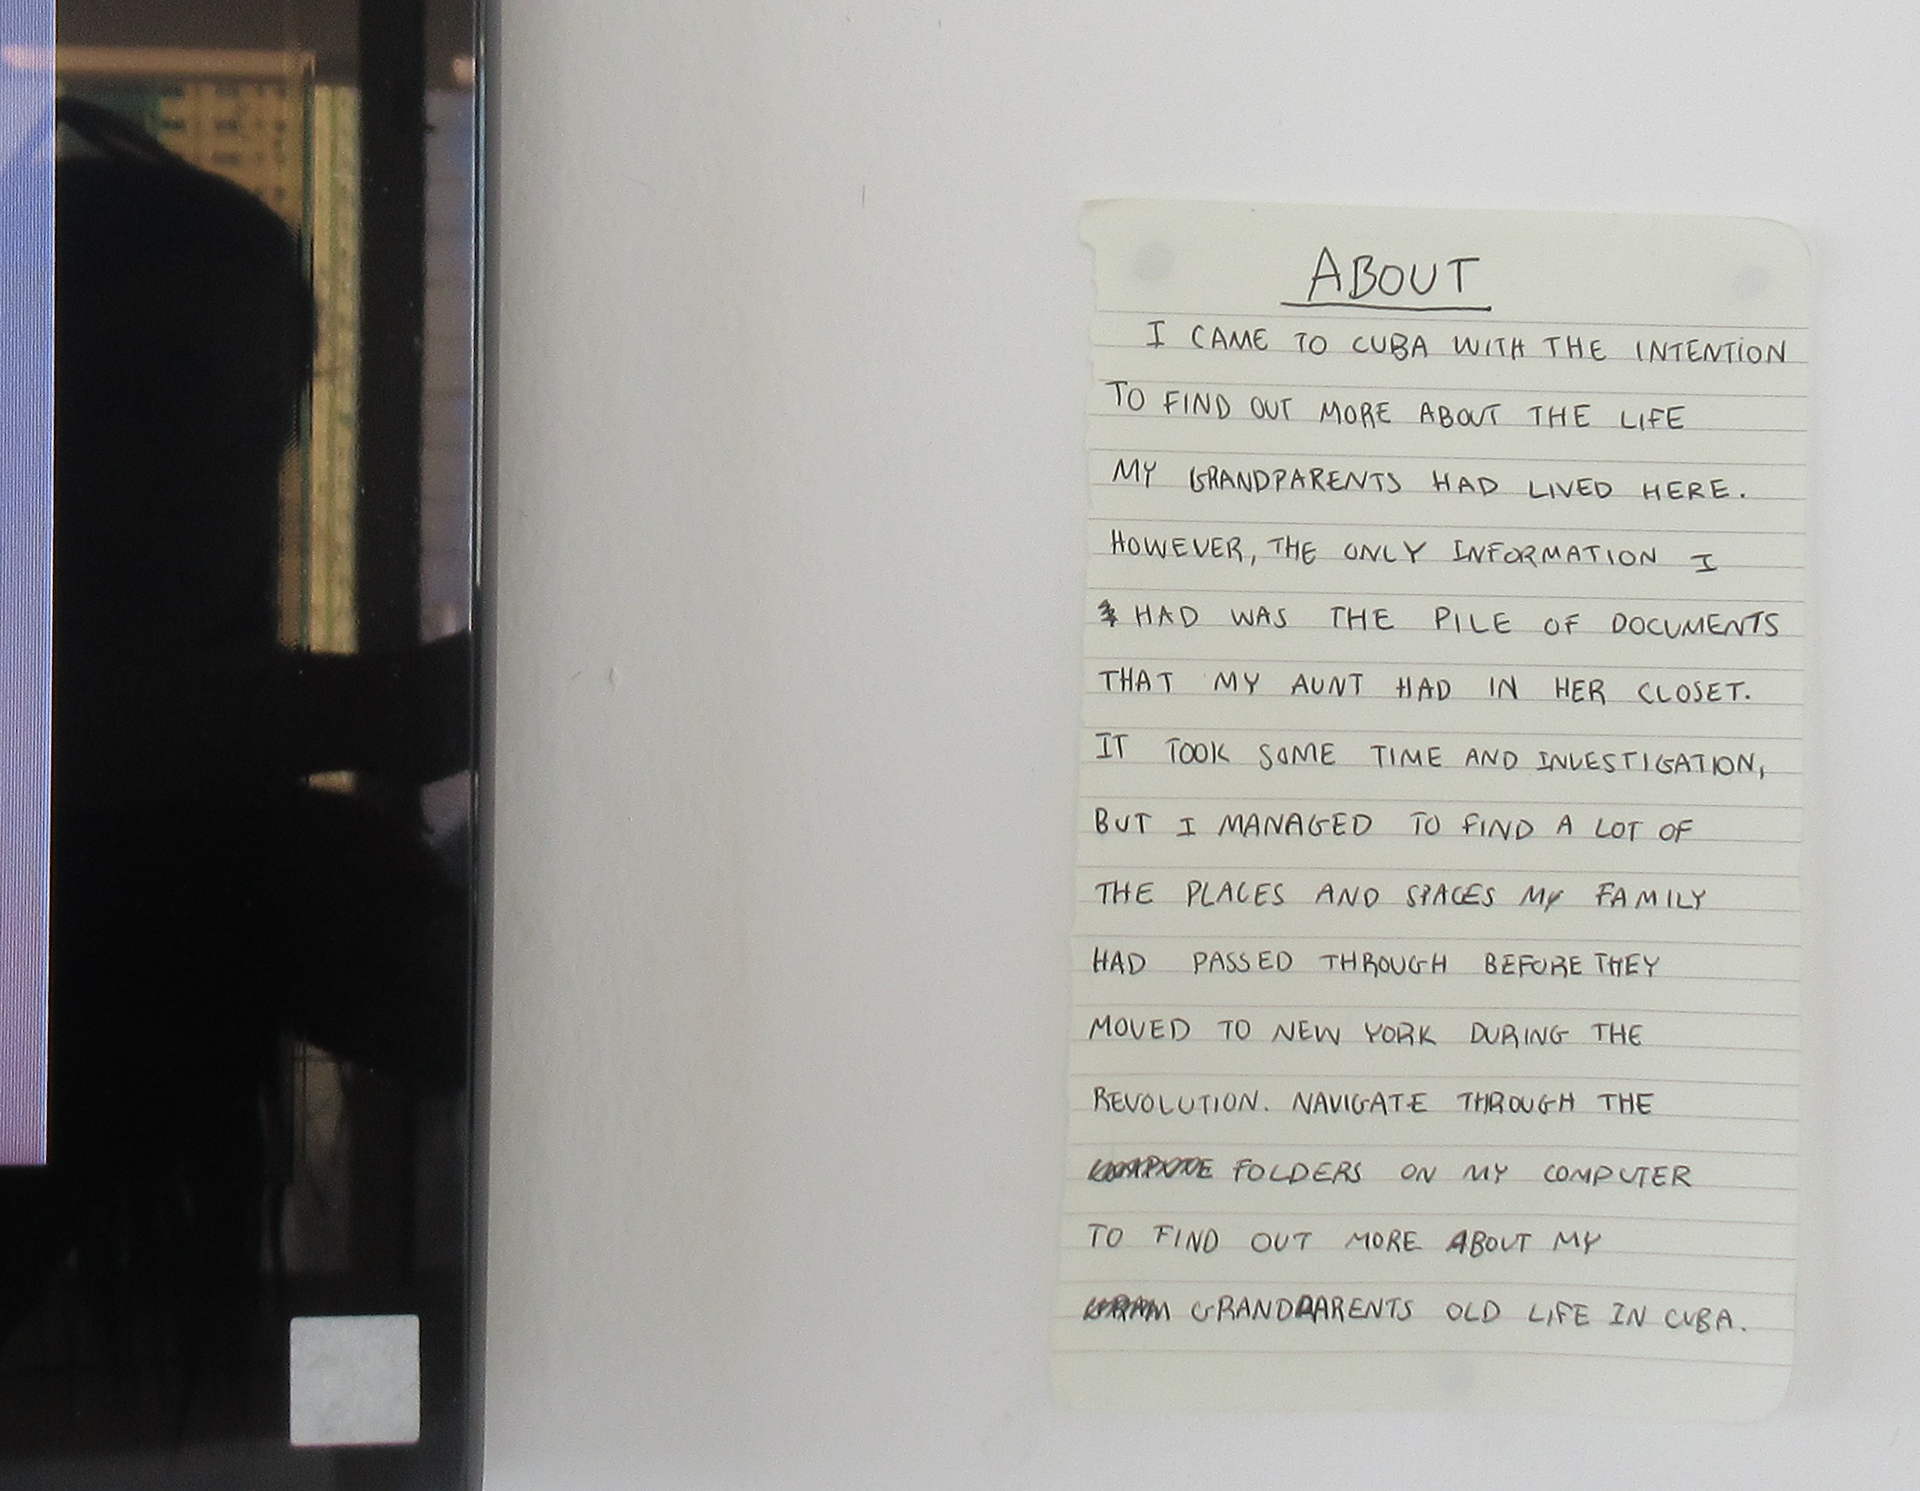 ABOUT
I CAME TO CUBA WITH THE INTENTION
TO FIND OUT MORE ABOUT THE LIFE
MY GRANDPARENTS HAD LIVED HERE.
HOWEVER, THE ONLY INFORMATION I
HAD WAS THE PILE OF DOCUMENTS
THAT MY AUNT HAD IN HER CLOSET.
IT TOOK SOME TIME AND INVESTIGATION,
BUT I MANAGED TO FIND A LOT OF
THE PLACES AND SPACES MY FAMILY
HAD PASSED THROUGH BEFORE THEY
MOVED TO NEW YORK DURING THE
REVOLUTION. NAVIGATE THROUGH THE
FOLDERS ON MY COMPUTER
TO FIND OUT MORE ABOUT MY
GRANDPARENTS OLD LIFE IN CUBA.